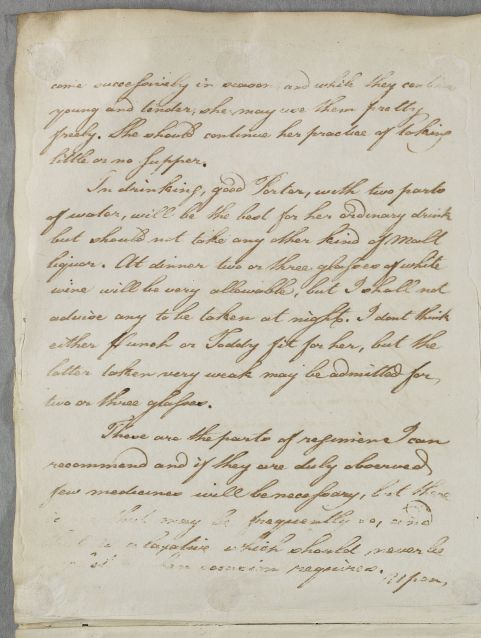 come successively in season and while they continue
young and tender, she may use them pretty
freely. She should continue her practice of taking
little or no supper.
In drinking, good Porter, with two parts
of water, will be the best for her ordinary drink
but should not take any other kind of Malt
liquor. At dinner two or three glasses of white
wine will be very allowable, but I shall not
advise any to be taken at night. I dont think
either Punch or Toddy fit for her, but the
latter taken very weak may be admitted for
two or three glasses.
These are the parts of regimen I can
recommend and if they are duly observed
few medicines will be necessary, but there
that may be frequently so, and
is a laxative which should never be
occasion requires.
Upon